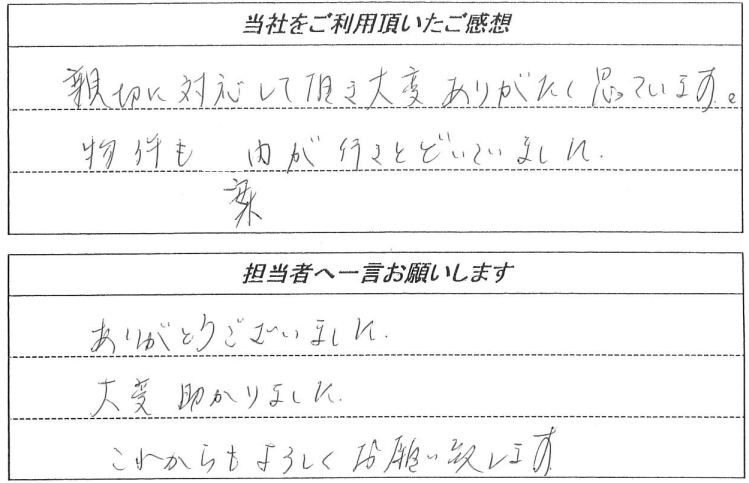 当社をご利用頂いたご感想
親切に対応して頂き大変ありがたく思っています。
物件も 内が行きとどいていました。
案
担当者へ一言お願いします
ありがとうございました。
大変助かりました。
これからもよろしくお願い致します